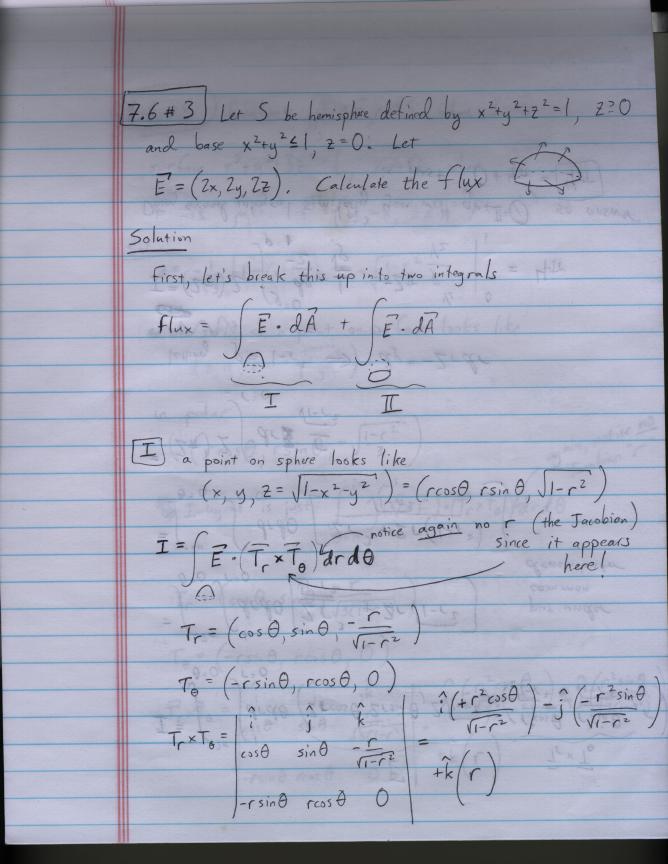 7.6 # 3 Let S be hemisphere defined by x²+y²+z²=1, z≥0
and base x²+y²≤1, z=0. Let
E⃗ = (2x, 2y, 2z). Calculate the flux
Solution
First, let's break this up into two integrals
flux = ∫ E⃗ · dA⃗ + ∫ E⃗ · dA⃗
I II
I a point on sphere looks like
(x, y, z = √(1-x²-y²)) = (rcosθ, rsinθ, √(1-r²))
notice again no r (the Jacobian)
I = ∫ E⃗ · (T⃗r × T⃗θ) dr dθ since it appears
here!
Tr = (cosθ, sinθ, -r/√(1-r²))
Tθ = (-r sinθ, rcosθ, 0)
Tr × Tθ = | î ĵ k̂ | = î(+r²cosθ/√(1-r²)) - ĵ(-r²sinθ/√(1-r²))
cosθ sinθ -r/√(1-r²) +k̂(r)
-r sinθ rcosθ 0